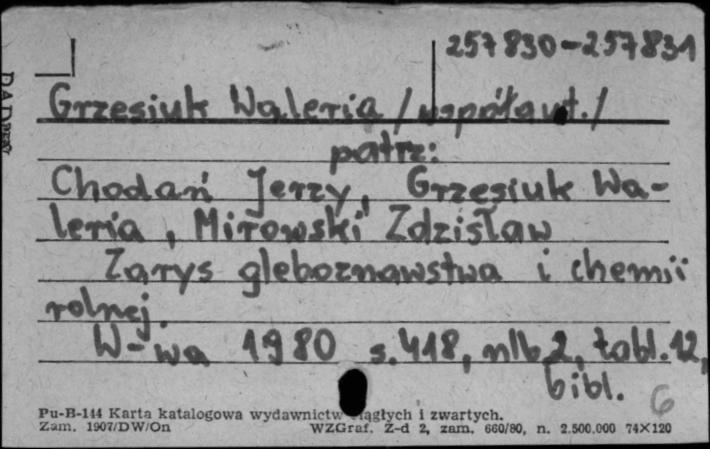 257830-257831
Grzesiuk Waleria /współaut./
patrz:
Chodań Jerzy, Grzesiuk Wa-
leria, Mirowski Zdzisław
Zarys gleboznawstwa i chemii
rolnej.
W-wa 1980 s.418, nlb 2, tabl.12,
bibl. 6
Pu-B-144 Karta katalogowa wydawnictw ciągłych i zwartych.
Zam. 1907/DW/On WZGraf. Z-d 2, zam. 660/80, n. 2.500.000 74X120